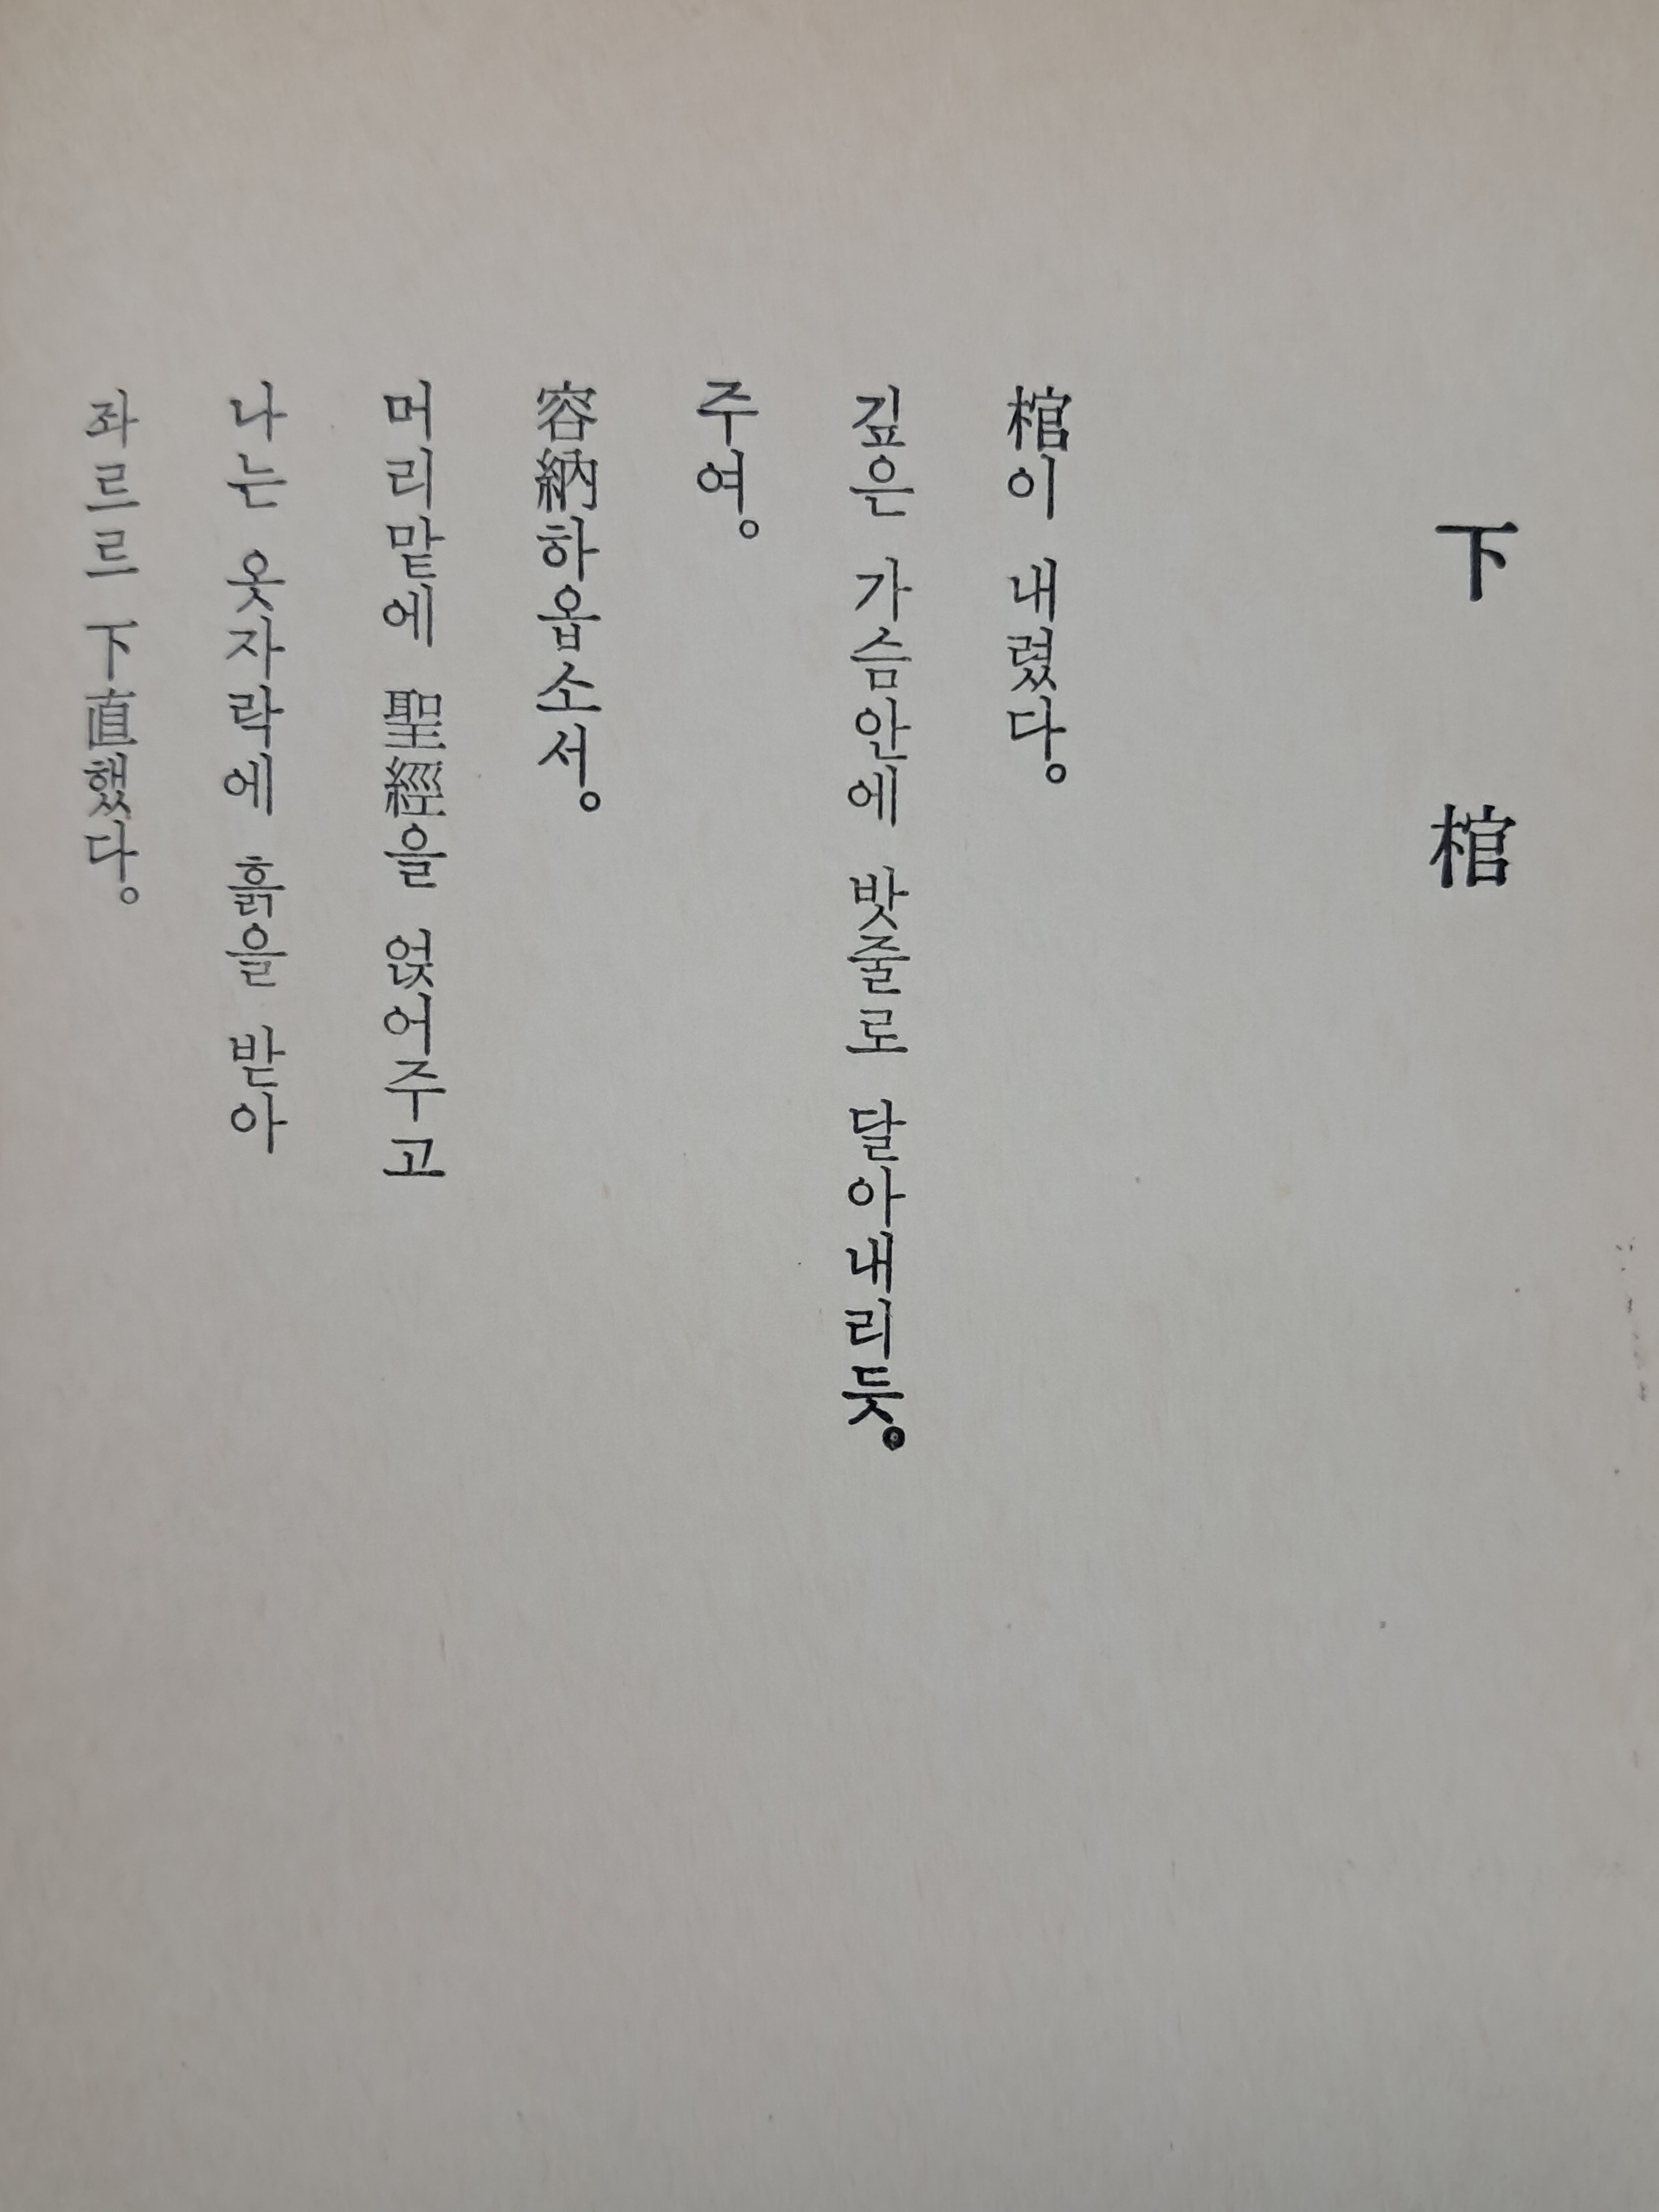 下棺
棺이 내렸다。
깊은 가슴안에 밧줄로 달아내리듯。
주여。
容納하옵소서。
머리맡에 聖經을 얹어주고
나는 옷자락에 흙을 받아
좌르르 下直했다。